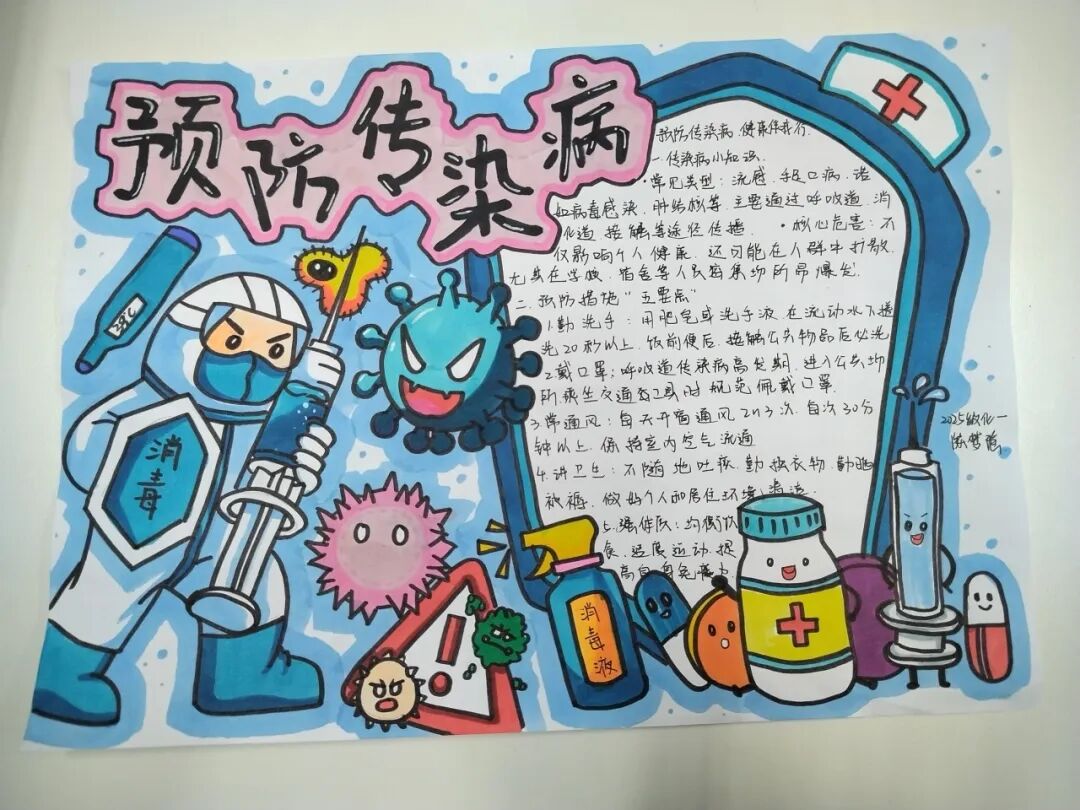 预防传染病
预防传染病,健康伴我行.
一.传染病小知识.
·常见类型:流感、手足口病、诺
如病毒感染、肺结核等,主要通过呼吸道、消
化道、接触等途径传播. ·核心危害:不
仅影响个人健康,还可能在人群中扩散,
尤其在学校、宿舍等人员密集场所易爆发.
二.预防措施"五要点"
1.勤洗手:用肥皂或洗手液在流动水下搓
洗20秒以上,饭前便后、接触公共物品后必洗
2.戴口罩:呼吸道传染病高发期,进入公共场
所乘坐交通工具时规范佩戴口罩.
3.常通风:每天开窗通风2到3次,每次30分
钟以上,保持室内空气流通
4.讲卫生:不随地吐痰,勤换衣物、勤晒
被褥,做好个人和居住环境清洁.
5.强体质:均衡饮
食、适度运动,提
高自身免疫力.
消毒
消毒液
2025级化一